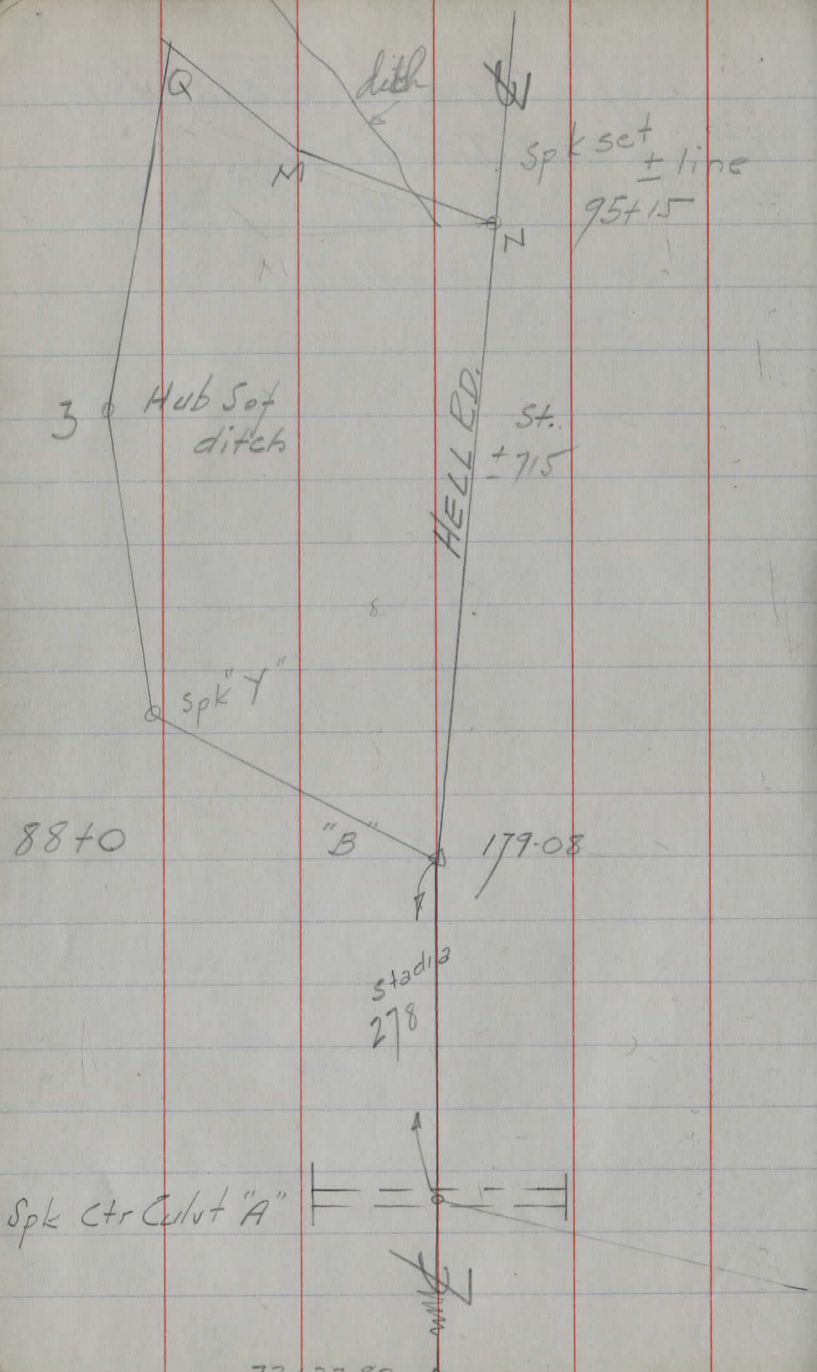 Q
ditch
M
℄
spk set
± line
95+15
Z
M
3
Hub S of
ditch
HELL RD.
St.
± 715
8
spk "Y"
88+0
"B"
179-08
stadia
278
Spk Ctr Culvt "A"
℄